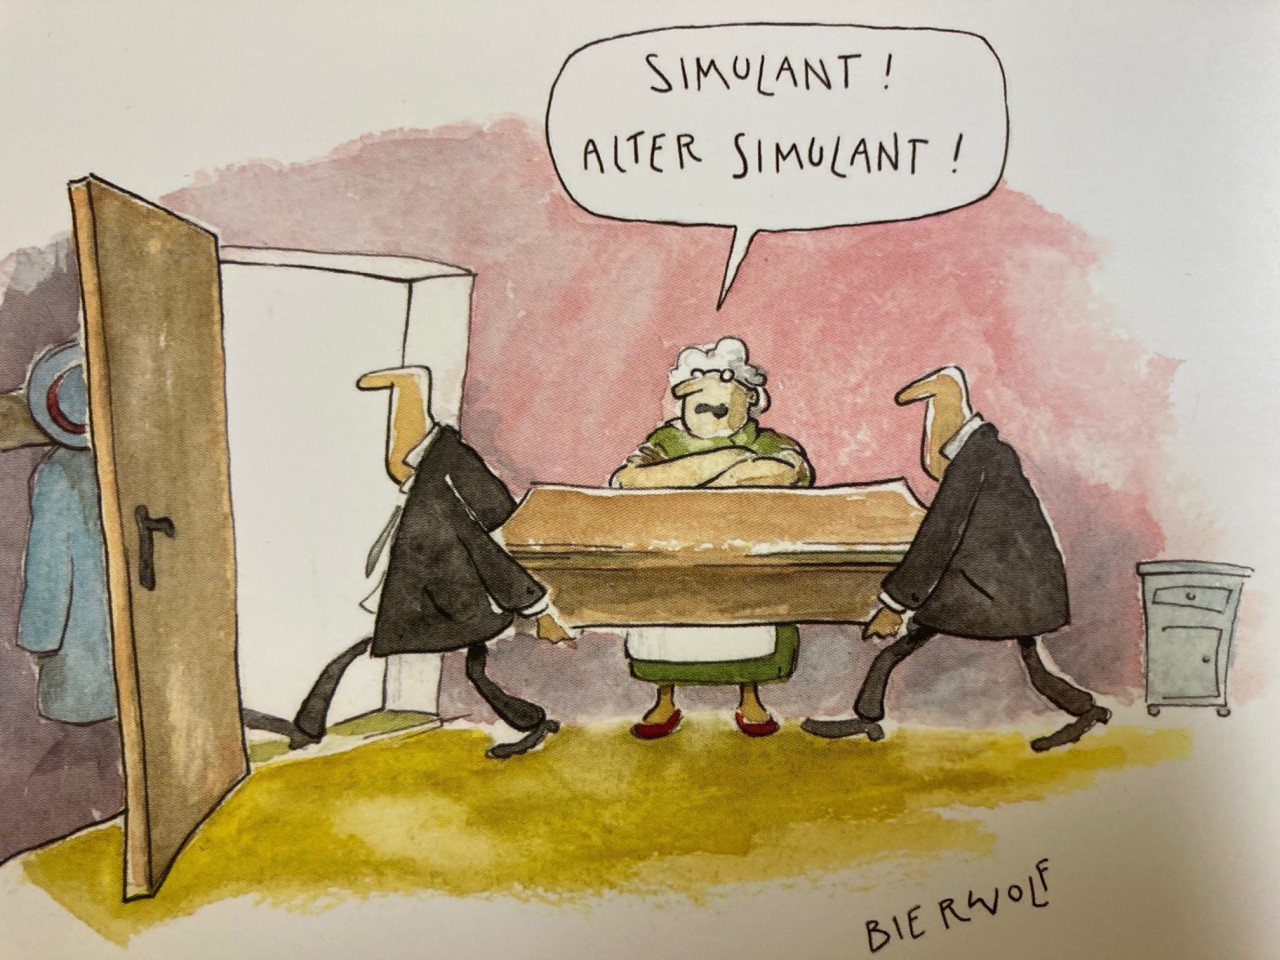 SIMULANT !
ALTER SIMULANT !
BIERWOLF